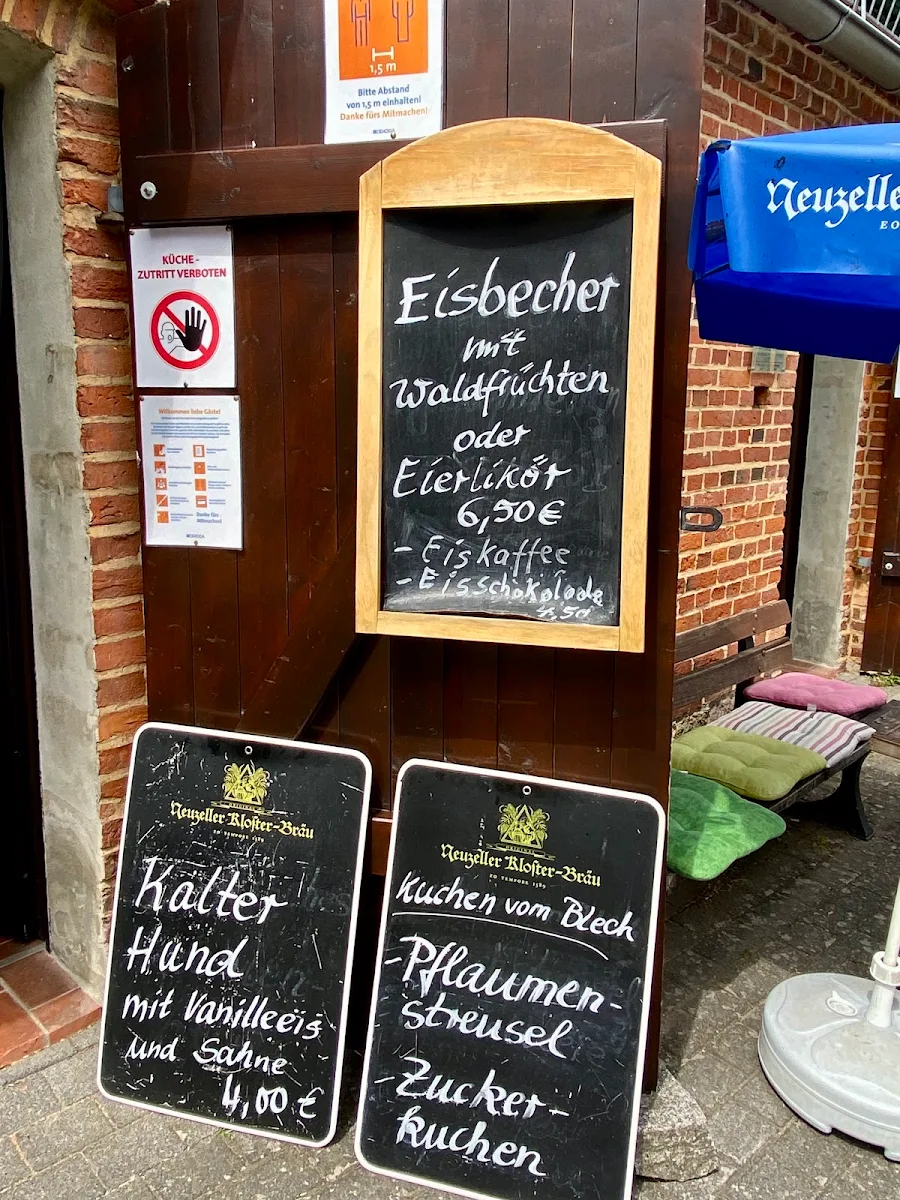 1,5 m
Bitte Abstand
von 1,5 m einhalten!
Danke fürs Mitmachen!
KÜCHE -
ZUTRITT VERBOTEN
Willkommen liebe Gäste!
Danke fürs
Mitmachen!
Eisbecher
mit
Waldfrüchten
oder
Eierlikör
6,50 €
- Eiskaffee
- Eisschokolade
4,50
Neuzelle
EO
ORIGINAL
Neuzeller Kloster-Bräu
EO TEMPORE 1589
Kalter
Hund
mit Vanilleeis
und Sahne
4,00 €
ORIGINAL
Neuzeller Kloster-Bräu
EO TEMPORE 1589
Kuchen vom Blech
- Pflaumen-
streusel
- Zucker-
kuchen